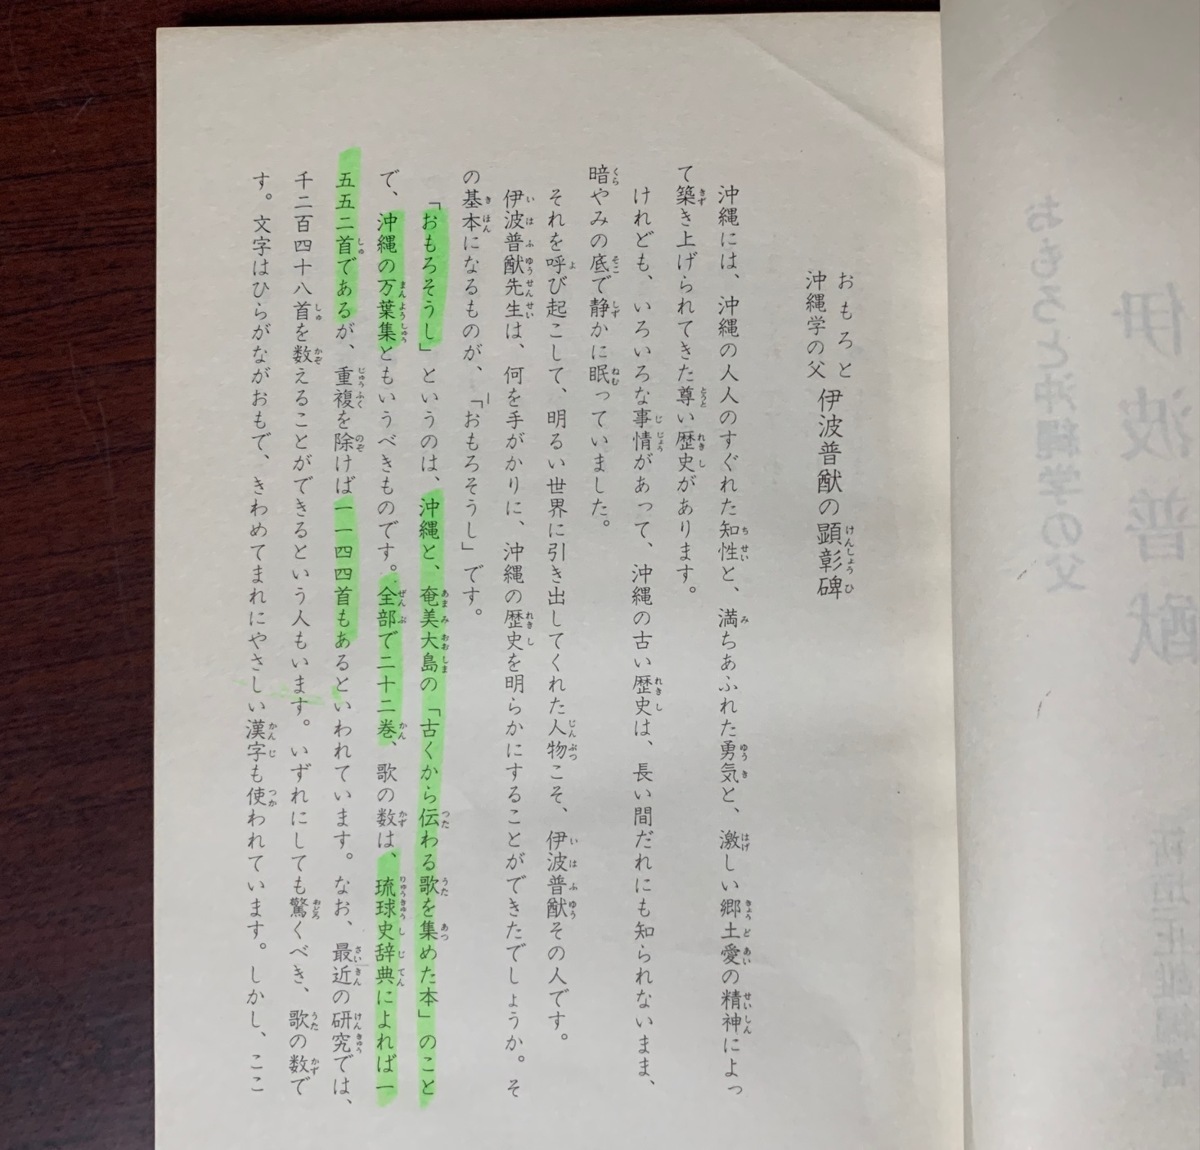 おもろと
沖縄学の父
伊波普猷の顕彰碑
沖縄には、沖縄の人人のすぐれた知性と、満ちあふれた勇気と、激しい郷土愛の精神によっ
て築き上げられてきた尊い歴史があります。
けれども、いろいろな事情があって、沖縄の古い歴史は、長い間だれにも知られないまま、
暗やみの底で静かに眠っていました。
それを呼び起こして、明るい世界に引き出してくれた人物こそ、伊波普猷その人です。
伊波普猷先生は、何を手がかりに、沖縄の歴史を明らかにすることができたでしょうか。そ
の基本になるものが、「おもろそうし」です。
「おもろそうし」というのは、沖縄と、奄美大島の「古くから伝わる歌を集めた本」のこと
で、沖縄の万葉集ともいうべきものです。全部で二十二巻、歌の数は、琉球史辞典によれば一
五五二首であるが、重複を除けば一一四四首もあるといわれています。なお、最近の研究では、
千二百四十八首を数えることができるという人もいます。いずれにしても驚くべき、歌の数で
す。文字はひらがながおもで、きわめてまれにやさしい漢字も使われています。しかし、ここ